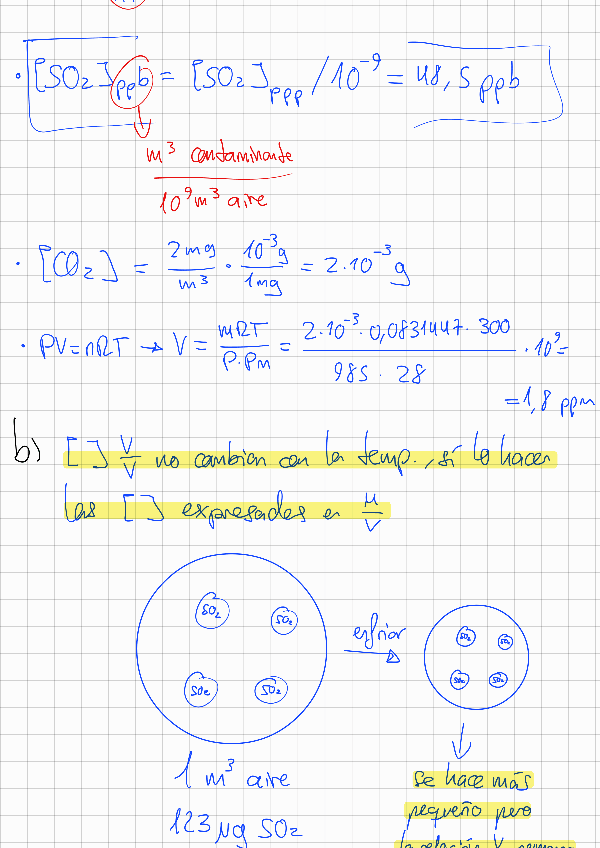 · [SO2]ppb = [SO2]ppp / 10^-9 = 48,5 ppb
m³ contaminante
10⁹ m³ aire
· [CO2] = 2mg/m³ · 10^-3 g/1mg = 2·10^-3 g
· PV=nRT → V = mRT/P·Pm = 2·10^-3·0,0831447·300/985·28 · 10⁹ =
= 1,8 ppm
b) [ ] V/V no cambian con la temp., sí lo hacen
las [ ] expresadas en μ/V
SO2 SO2 SO2 SO2
enfriar
SO2 SO2 SO2 SO2
1 m³ aire
123 μg SO2
se hace más
pequeño pero
la relación V